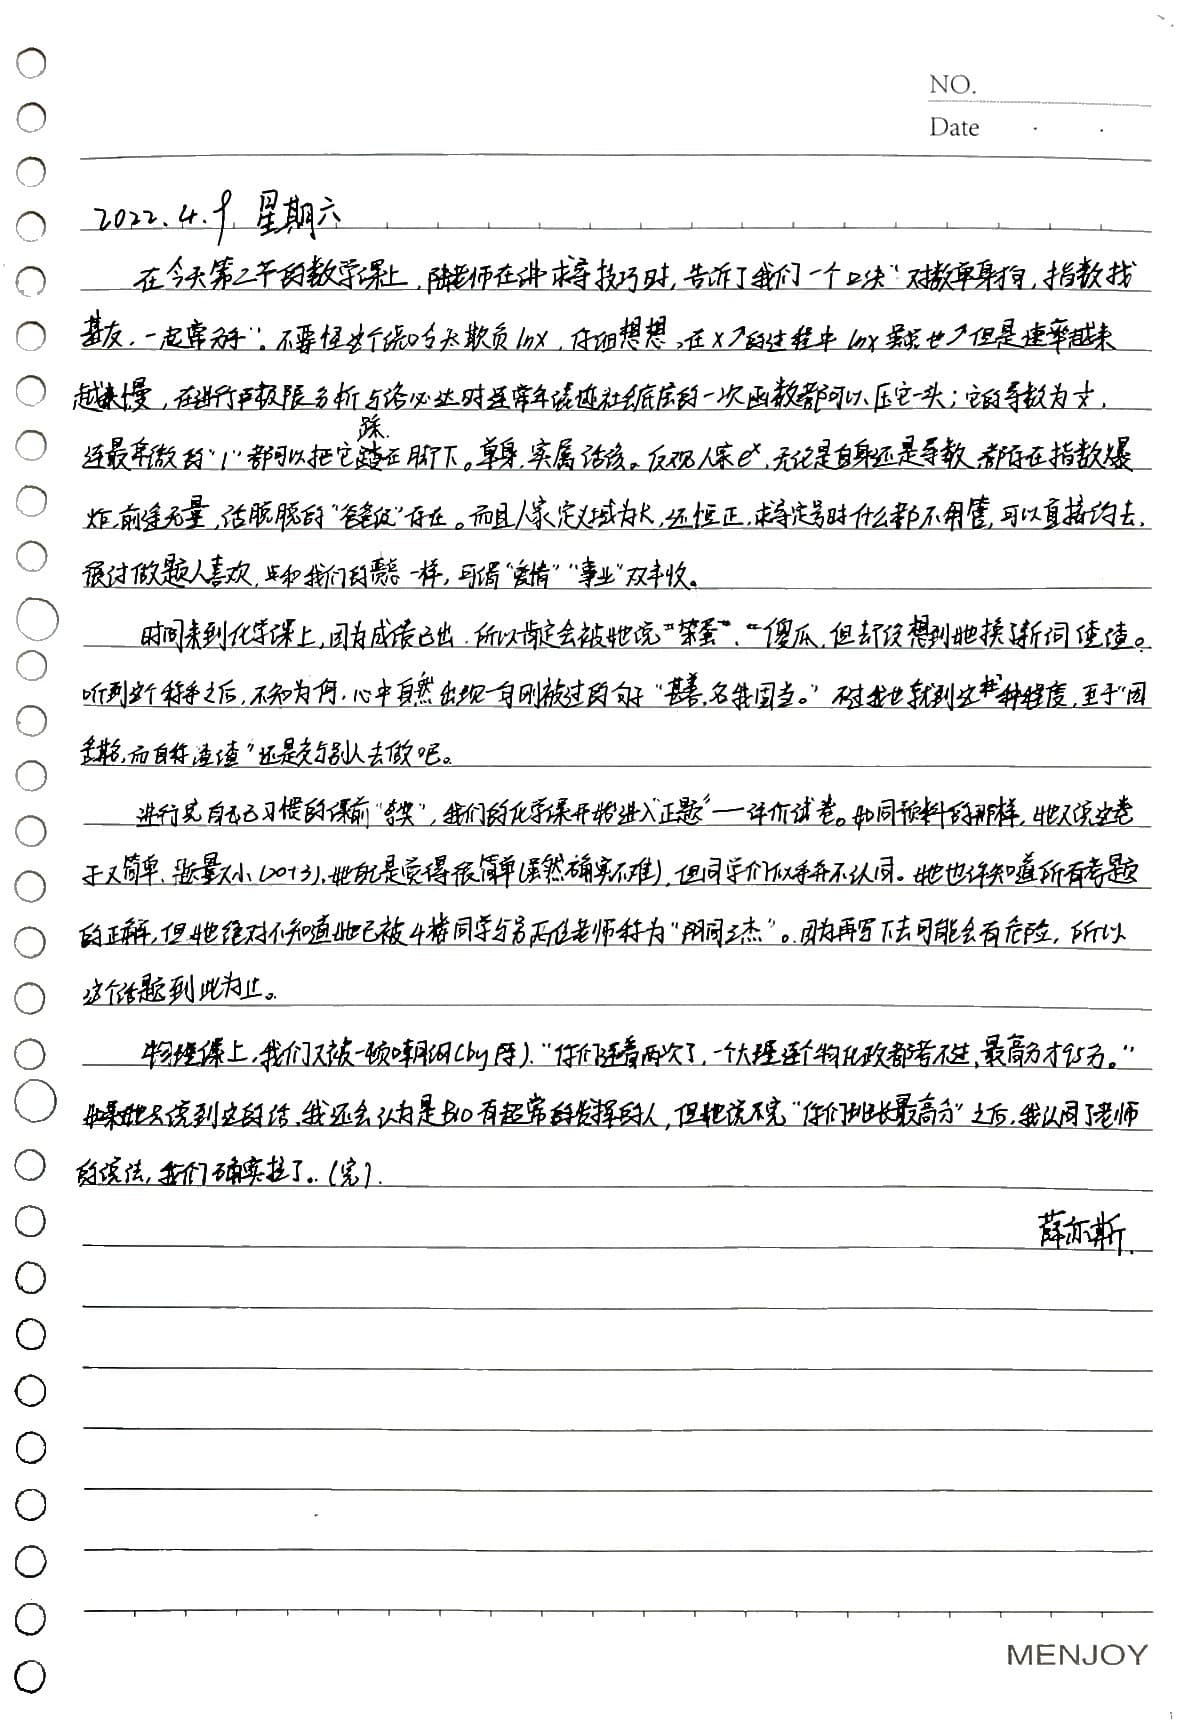 NO.
Date
2022.4.9 星期六
在今天第二节的数学课上,陆老师在讲求导技巧时,告诉了我们一个口决"对数单身狗,指数找
基友,一起常为手"。不要怪这个说今天欺负lnx,仔细想想,在x↗的过程中lnx虽然也↗但是速率越来
越来慢,在进行极限分析与洛必达时连常年混迹社会底层的一次函数都可以压它一头;它的导数为
连最卑微的"1"都可以把它踩在脚下。单身,实属活该。反观人家eˣ,无论是自身还是导数,都存在指数爆
炸,前途无量,活脱脱的"爸爸级"存在。而且人家定义域为R,还恒正,求导定号时什么都不用管,可以直接约去,
很讨做题人喜欢,一样,可谓"爱情""事业"双丰收。
时间来到化学课上,因为成绩已出,所以肯定会被她说"笨蛋"、"傻瓜,但却没想到她换了新词渣渣。
听到这个称呼之后,不知为何,心中自然出现一句刚被过的句子"甚善,名我固当。"不过我也就到这种程度,至于"因
舍名,而自称渣渣"还是交与别人去做吧。
进行完自己已习惯的课前"夸奖",我们的化学课开始进入"正题"——评价试卷。如同预料的那样,她又说这卷
子又简单、题量又小(2013),她就是觉得很简单(虽然确实不难),但同学们似乎并不认同。她也许知道所有考题
的正解,但她绝对不知道她已被4楼同学与另两位老师称为"阴间三杰"。因为再写下去可能会有危险,所以
这个话题到此为止。
物理课上,我们又被一顿嘲讽(by 陈)."你们随着两次了,一个大理连个物化政都考不过,最高分才95分。"
如果她只说到这的话,我还会认为是B10有超常的发挥的人,但她说不完"你们班长最高分"之后,我认同了老师
的说法,我们确实拉了。(完).
薛亦斯.
MENJOY